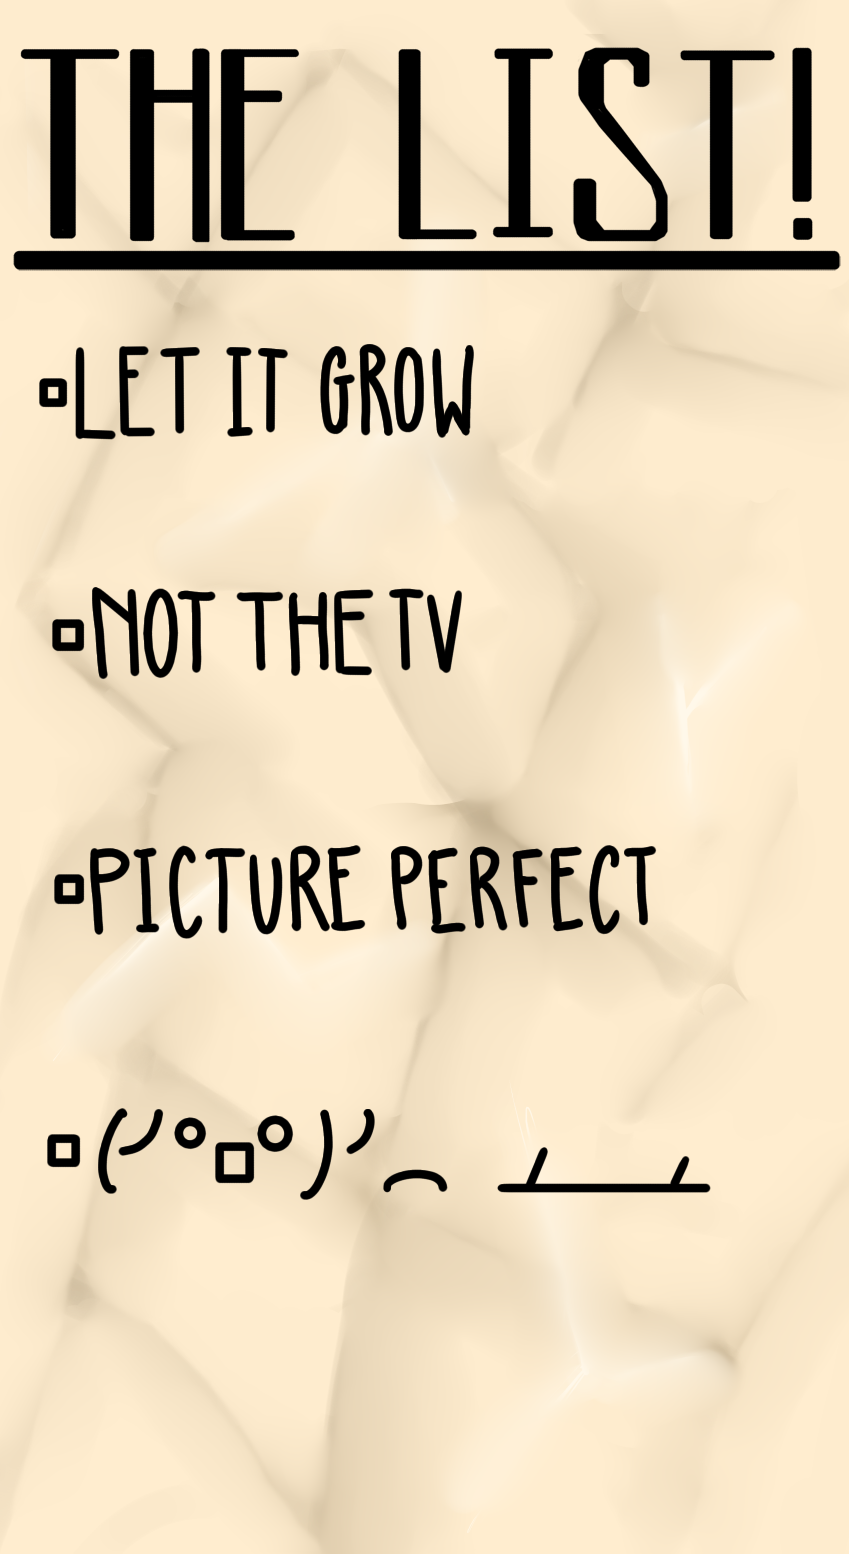 THE LIST!
▫LET IT GROW
▫NOT THE TV
▫PICTURE PERFECT
▫(╯°□°)╯︵ ┻━┻